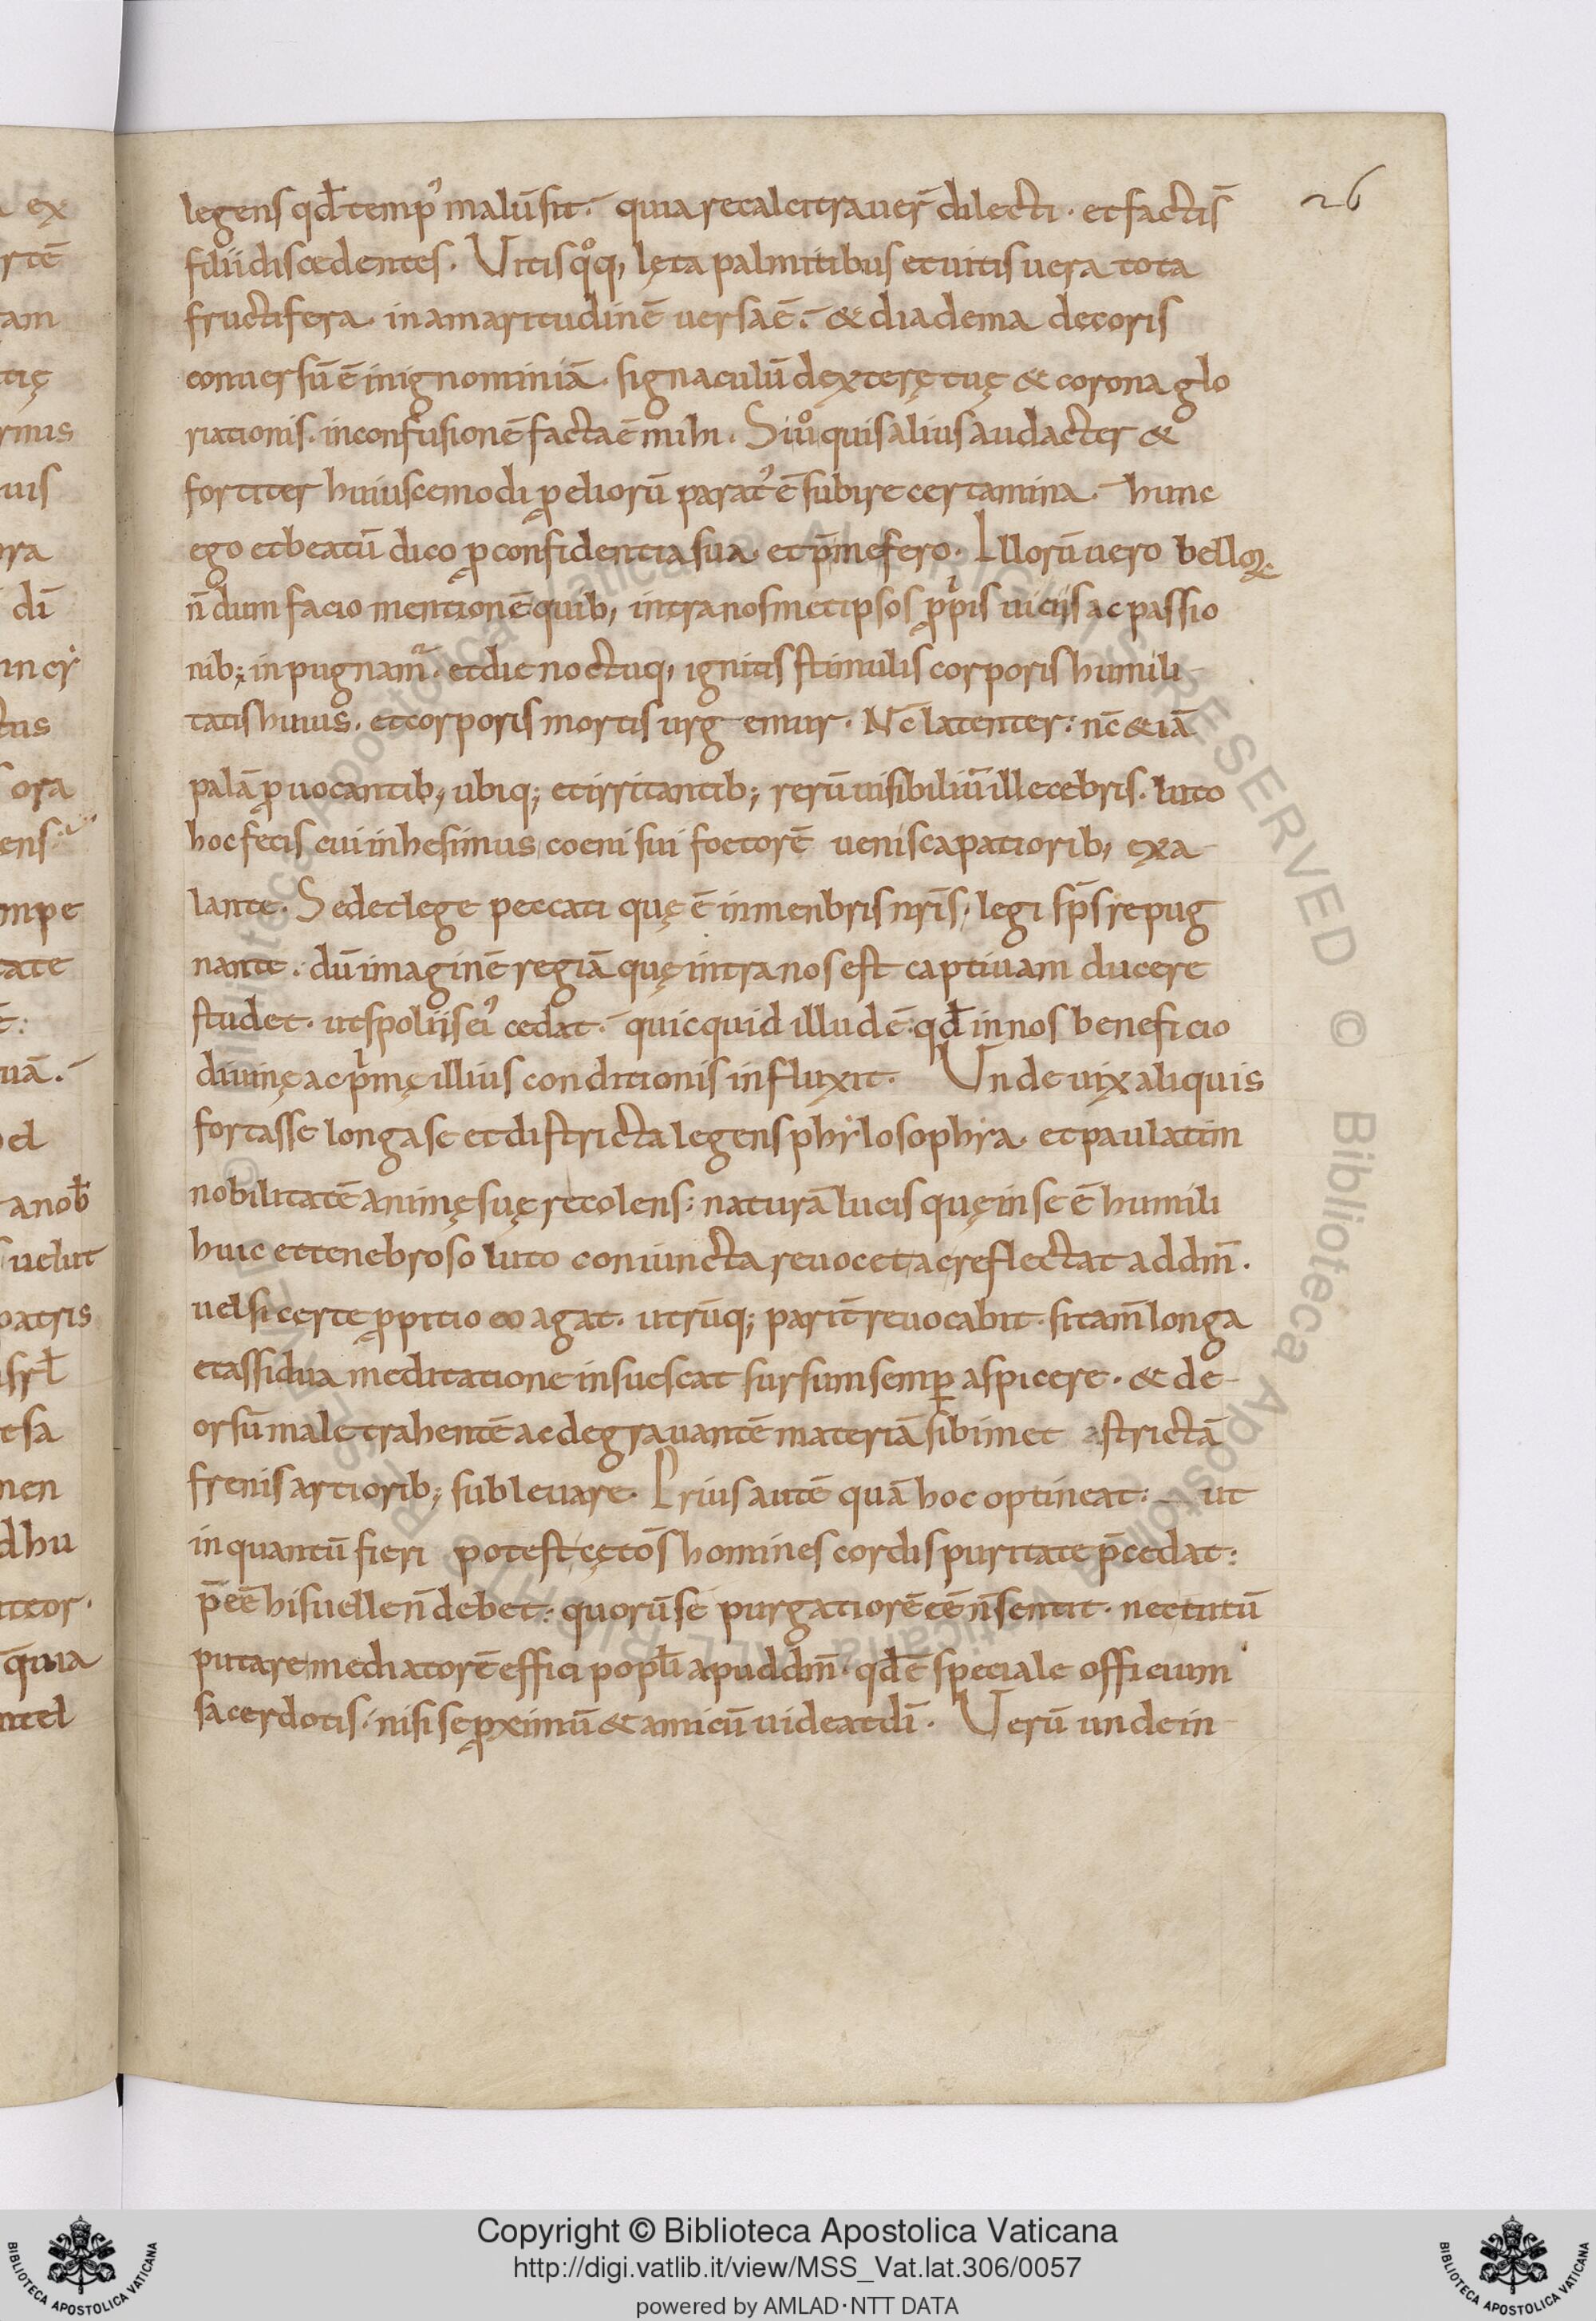 26
legens qđ temp᾿ malū sit. quia recalcitrauer̄ dilecti. et factis̄
filii discedentes. Vitis qͦq, lęta palmitibus et uitis uera tota
fructifera. in amaritudinē uersa ē. & diadema decoris
conuersū ē in ignominiā. signaculū dexterę tuę & corona glo
riationis. in confusionē facta ē mihi. Si uͦ quis alius audacter &
fortiter huiuscemodi p̄eliorū parat᾿ ē subire certamina. hunc
ego et beatū dico ꝓ confidentia sua. et p̄ me fero. Illorū uero belloꝝ
n̄ dum facio mentionē quib, intra nosmetipsos ꝓpͥis uiciis ac passio
nib; inpugnam᷑. et die noctuq, ignitis stimulis corporis humili
tatis huius. et corporis mortis urgemur. Nc̄ latenter: nc̄ & iā
palā ꝓuocantib; ubiq; et irritantib; rerū uisibiliū illecebris. luto
hoc fecis cui inhesimus coeni sui foetorē uenis capatiorib, exa
lante. Sed et lege peccati quę ē in menbris nr̄is. legi sp̄s repug
nante. dū imaginē regiā quę intra nos est captiuam ducere
studet. ut spoliis ei᾿ cedat. quicquid illud ē. qđ in nos beneficio
diuinę ac pͥmę illius conditionis influxit. Vnde uix aliquis
fortasse longa se et districta legens phylosophya. et paulatim
nobilitatē animę suę recolens: naturā lucis quę in se ē humili
huic et tenebroso luto coniuncta reuocet ac reflectat ad dm̄.
uel si certe ꝓpitio eo agat. utrūq; parit̄ reuocabit. si tam̄ longa
et assidua meditatione insuescat sursum semꝑ aspicere. & de
orsū male trahentē ac degrauantē materiā sibimet astrictā
frenis artiorib; subleuare. Prius autē quā hoc optineat: ut
in quantū fieri potest cęto̅s homines cordis puritate p̄cedat:
p̄ eē his uelle n̄ debet: quorū se purgatiorē eē n̄ sentit. nec tutū
putare mediatorē effici popłi apud dm̄. qđ ē speciale officium
sacerdotis. nisi se ꝓximū & amicū uideat dī. Verū unde in
ex
rtē
am
tię
rmus
uis
ora
dī
tus
ora
ens
mpe
tate
uā.
el
a nob̄
uelut
patris
isrł
esa
men
dhu
teor.
quia
ntel
Copyright © Biblioteca Apostolica Vaticana
http://digi.vatlib.it/view/MSS_Vat.lat.306/0057
powered by AMLAD·NTT DATA
BIBLIOTECA APOSTOLICA VATICANA
BIBLIOTECA APOSTOLICA VATICANA